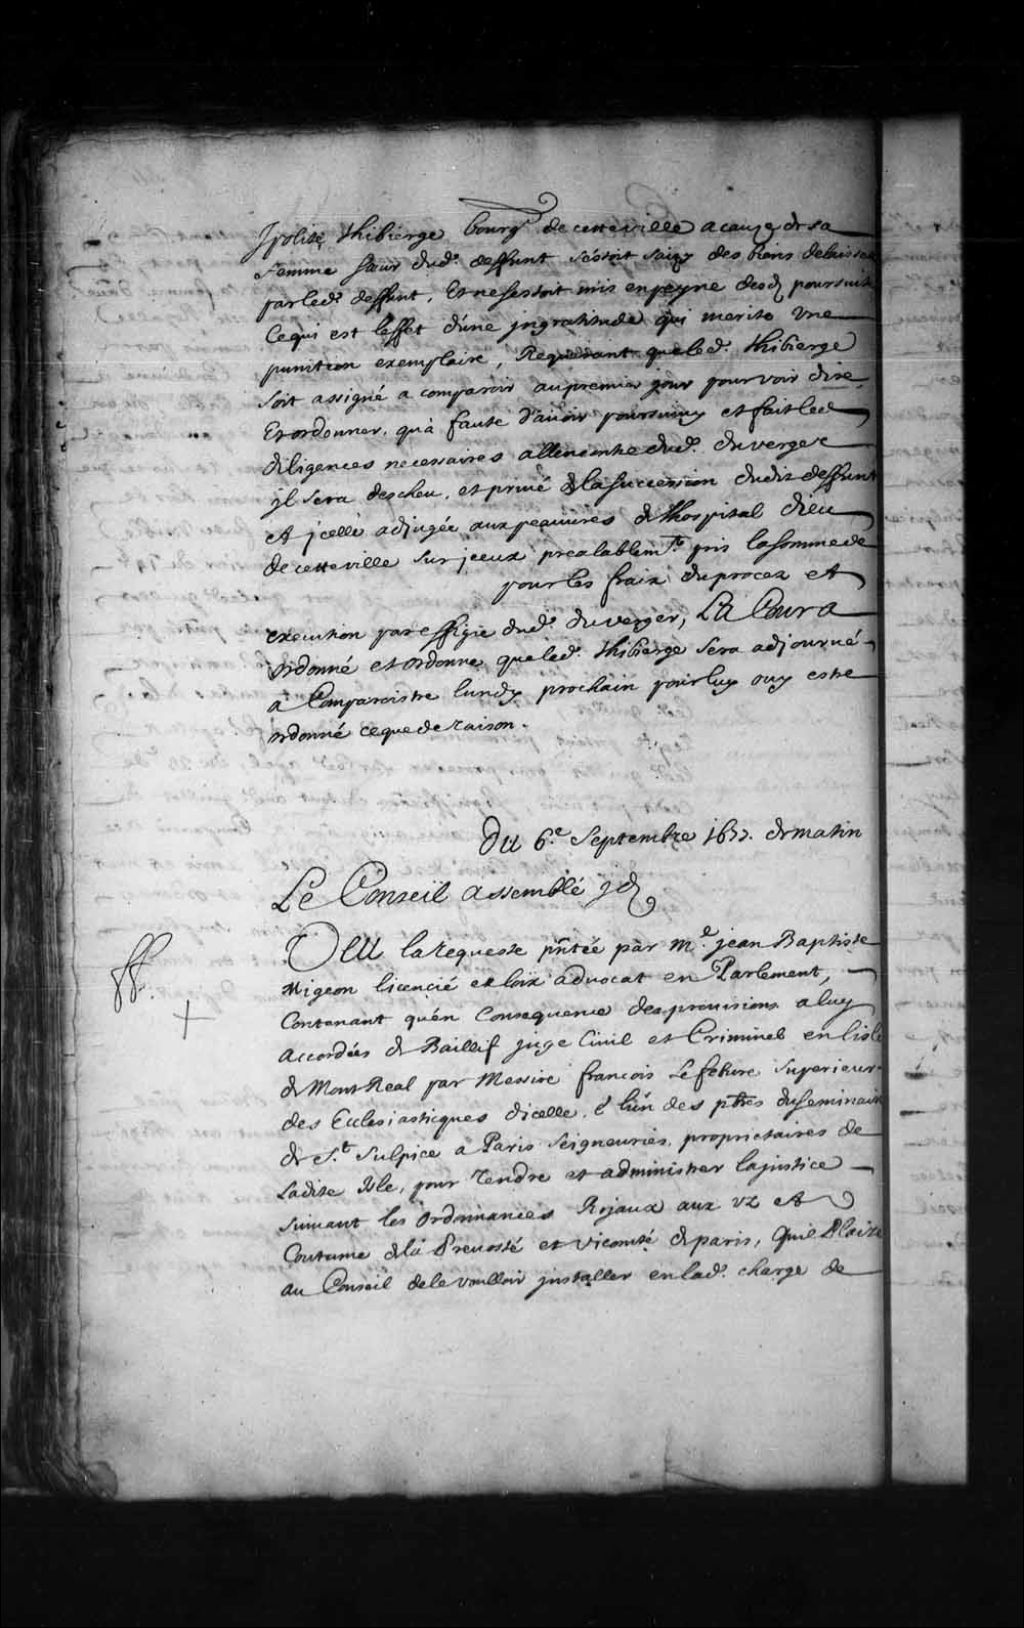 Jpolite thibierge bourg.s de cette ville a cause de sa
femme sœur dud. deffunt s'estoit saisy des biens delaissez
par led. deffunt, Et ne s'estoit mis en peyne de poursuite
Ce qui est l'effet d'une jngratitude qui merite Vne
punition exemplaire, Requerant que led. thibierge
soit assigné a comparoir au premier jour pour voir dire
Et ordonner, qu'a faute d'auoir poursuiuy et fait les
diligences necessaires allencontre dud. duverger
jl sera descheu, et priué de la succession dudit deffunt
et jcelle adjugée aux pauures de l'hospital dieu
de cette ville sur jceux prealablem.t pris la somme de
pour les fraix du procez et
execution par effigie dud. duverger, La Cour a
ordonné et ordonne que led. thibierge sera adjourné
a Comparoistre lundy prochain pour luy ouy estre
ordonné ce que de raison.
Du 6.e Septembre 1677. de matin
Le Conseil assemblé
Veu la requeste pñtée par M.e jean Baptiste
Migeon licencié es loix advocat en Parlement,
Contenant qu'en Consequence des prouisions a luy
accordées de Baillif juge Ciuil et Criminel en lisle
de MontReal par Messire françois Lefebure Superieur
des Ecclesiasticques d'icelle, & l'un des ptres du seminaire
de S.t Sulpice a Paris Seigneuries, proprietaires de
Ladite Isle, pour rendre et administrer la justice
suiuant les ordonnances Royaux aux vz et
Coutume de la Preuosté et vicomté de paris, Quil Plaise
au Conseil de le voulloir jnstaller en lad. charge de